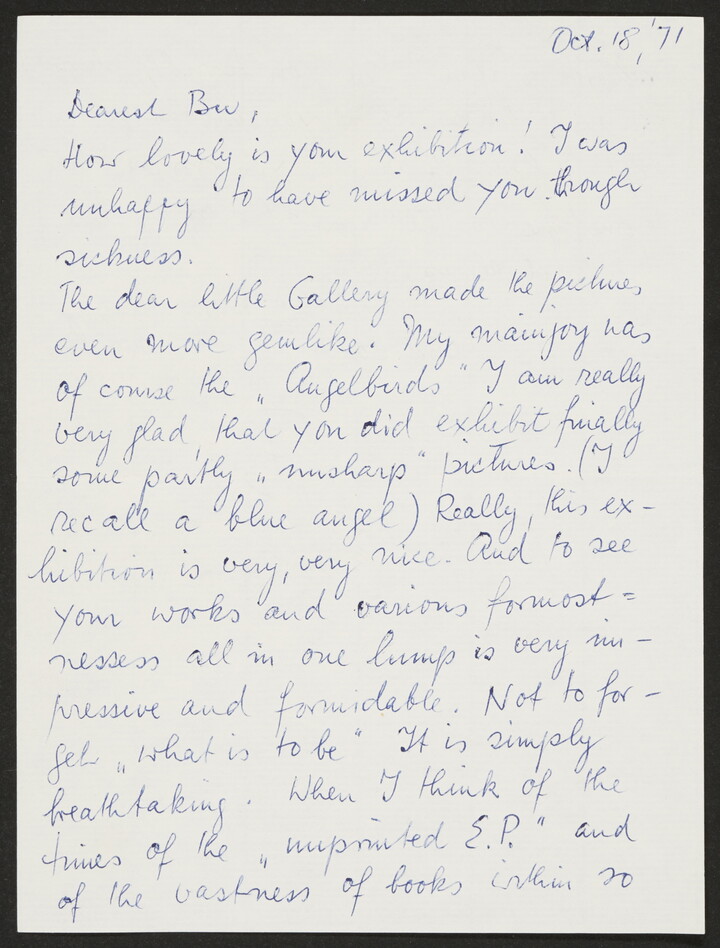 Oct. 18, '71
Dearest Bu,
How lovely is your exhibition! I was
unhappy to have missed you through
sickness.
The dear little Gallery made the pictures
even more gemlike. My main joy was
of course the „Angelbirds" I am really
very glad, that you did exhibit finally
some partly „unsharp" pictures. (I
recall a blue angel) Really, this ex-
hibition is very, very nice. And to see
your works and various formost=
nessess all in one lump is very im-
pressive and formidable. Not to for-
get „what is to be" It is simply
breathtaking. When I think of the
times of the „unprinted E.P." and
of the vastness of books within so